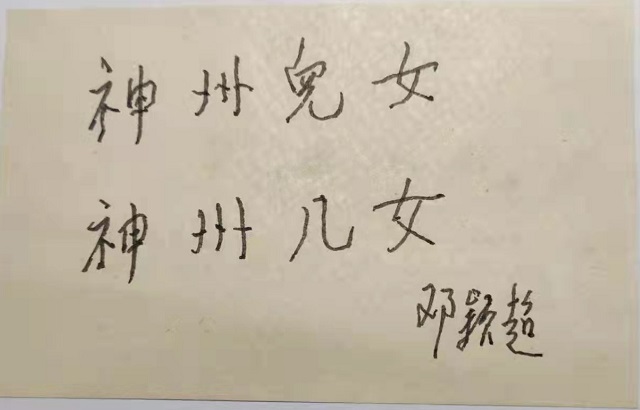 神州兒女
神州儿女
邓颖超